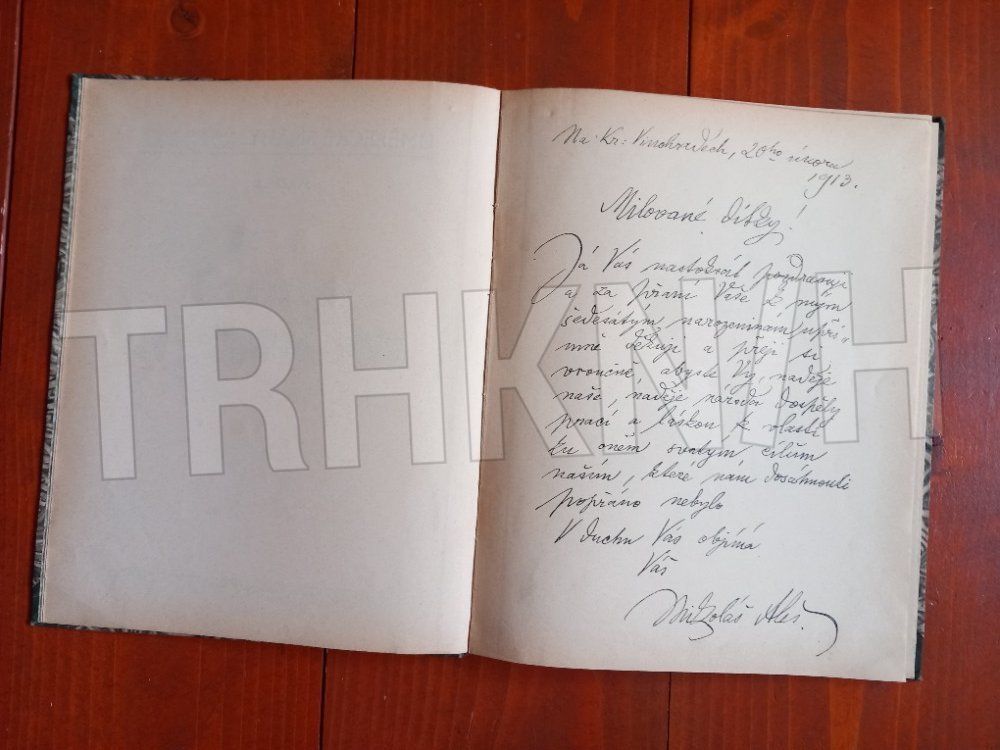 Na Kr: Vinohradech, 20ho února
1913.
Milované dítky!
Já Vás nastokrát pozdravuji
a za přání Vaše k mým
šedesátým narozeninám upří-
mně děkuji a přeji si
vroucně, abyste Vy, naděje
naše, naděje národa dospěly
prací a láskou k vlasti
ku oněm svatým cílům
našim, které nám dosáhnouti
popřáno nebylo
V duchu Vás objímá
Váš
Mikoláš Aleš.
TRHKNIH